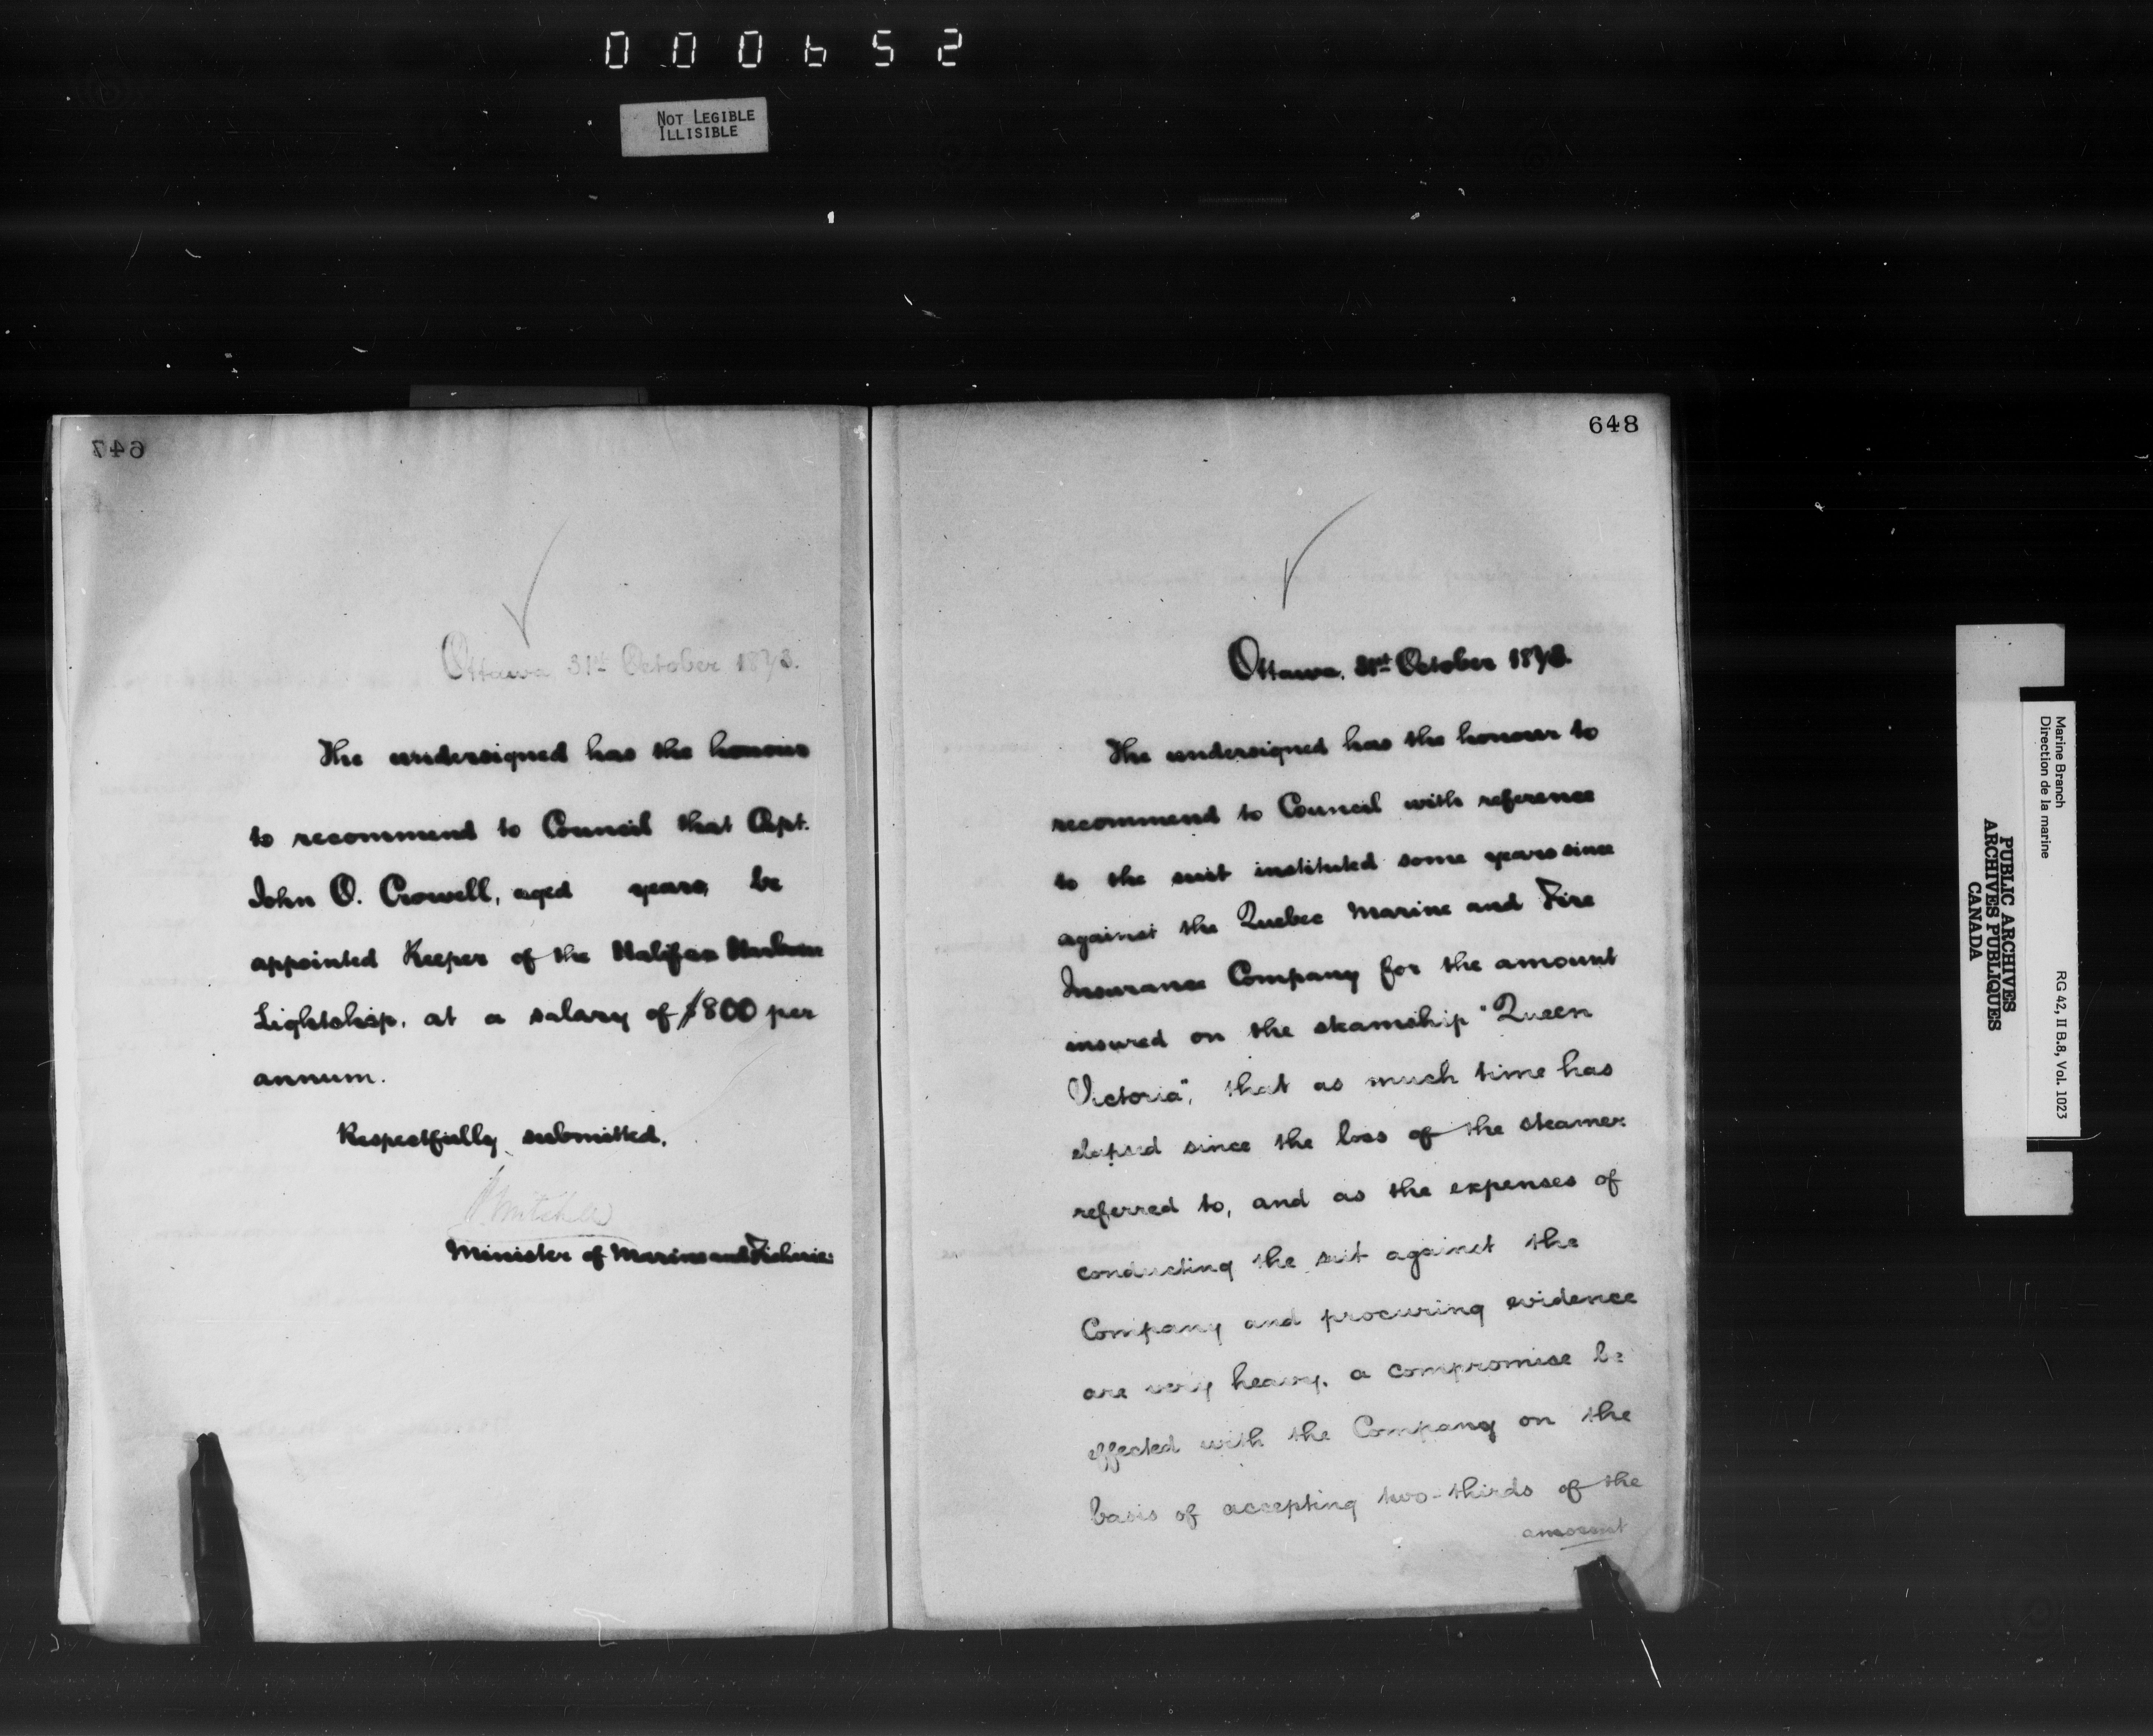 000652
NOT LEGIBLE
ILLISIBLE
647
Ottawa 31st October 1873.
The undersigned has the honour
to recommend to Council that Capt.
John O. Crowell, aged years, be
appointed Keeper of the Halifax Harbour
Lightship, at a salary of $800 per
annum.
Respectfully submitted,
P. Mitchell
Minister of Marine and Fisheries
648
Ottawa, 31st October 1873.
The undersigned has the honour to
recommend to Council with reference
to the suit instituted some years since
against the Quebec Marine and Fire
Insurance Company for the amount
insured on the steamship "Queen
Victoria", that as much time has
elapsed since the loss of the steamer
referred to, and as the expenses of
conducting the suit against the
Company and procuring evidence
are very heavy, a compromise be
effected with the Company on the
basis of accepting two-thirds of the
amount
Marine Branch
Direction de la marine
RG 42, II B.8, Vol. 1023
PUBLIC ARCHIVES
ARCHIVES PUBLIQUES
CANADA